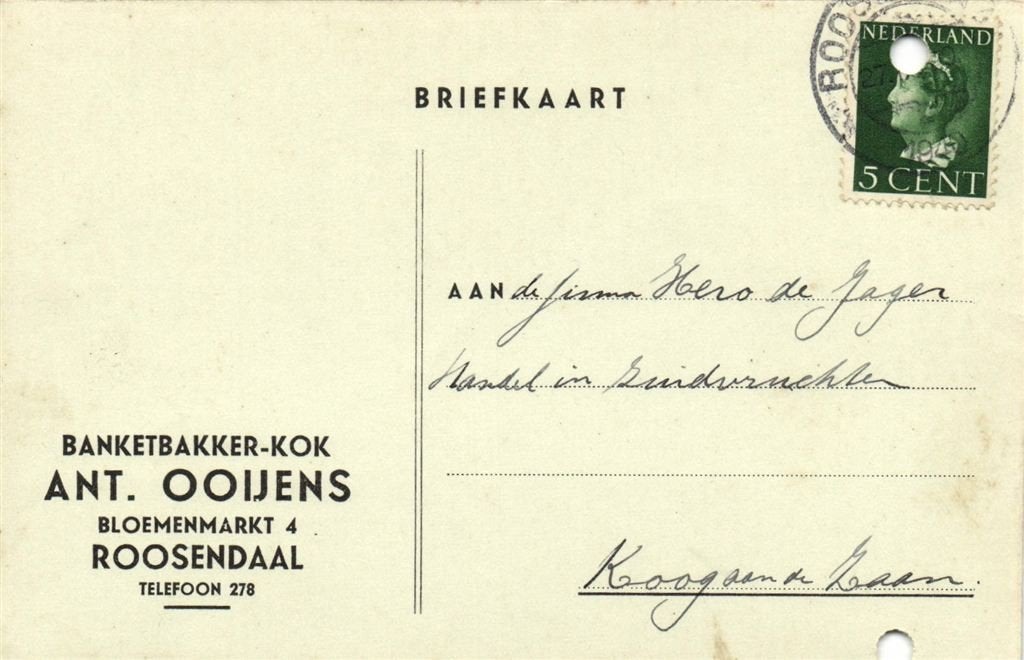 BRIEFKAART
ROOS
27
194
NEDERLAND
5 CENT
AAN de firma Hero de Jager
Handel in Zuidvruchten
Koog aan de Zaan.
BANKETBAKKER-KOK
ANT. OOIJENS
BLOEMENMARKT 4
ROOSENDAAL
TELEFOON 278